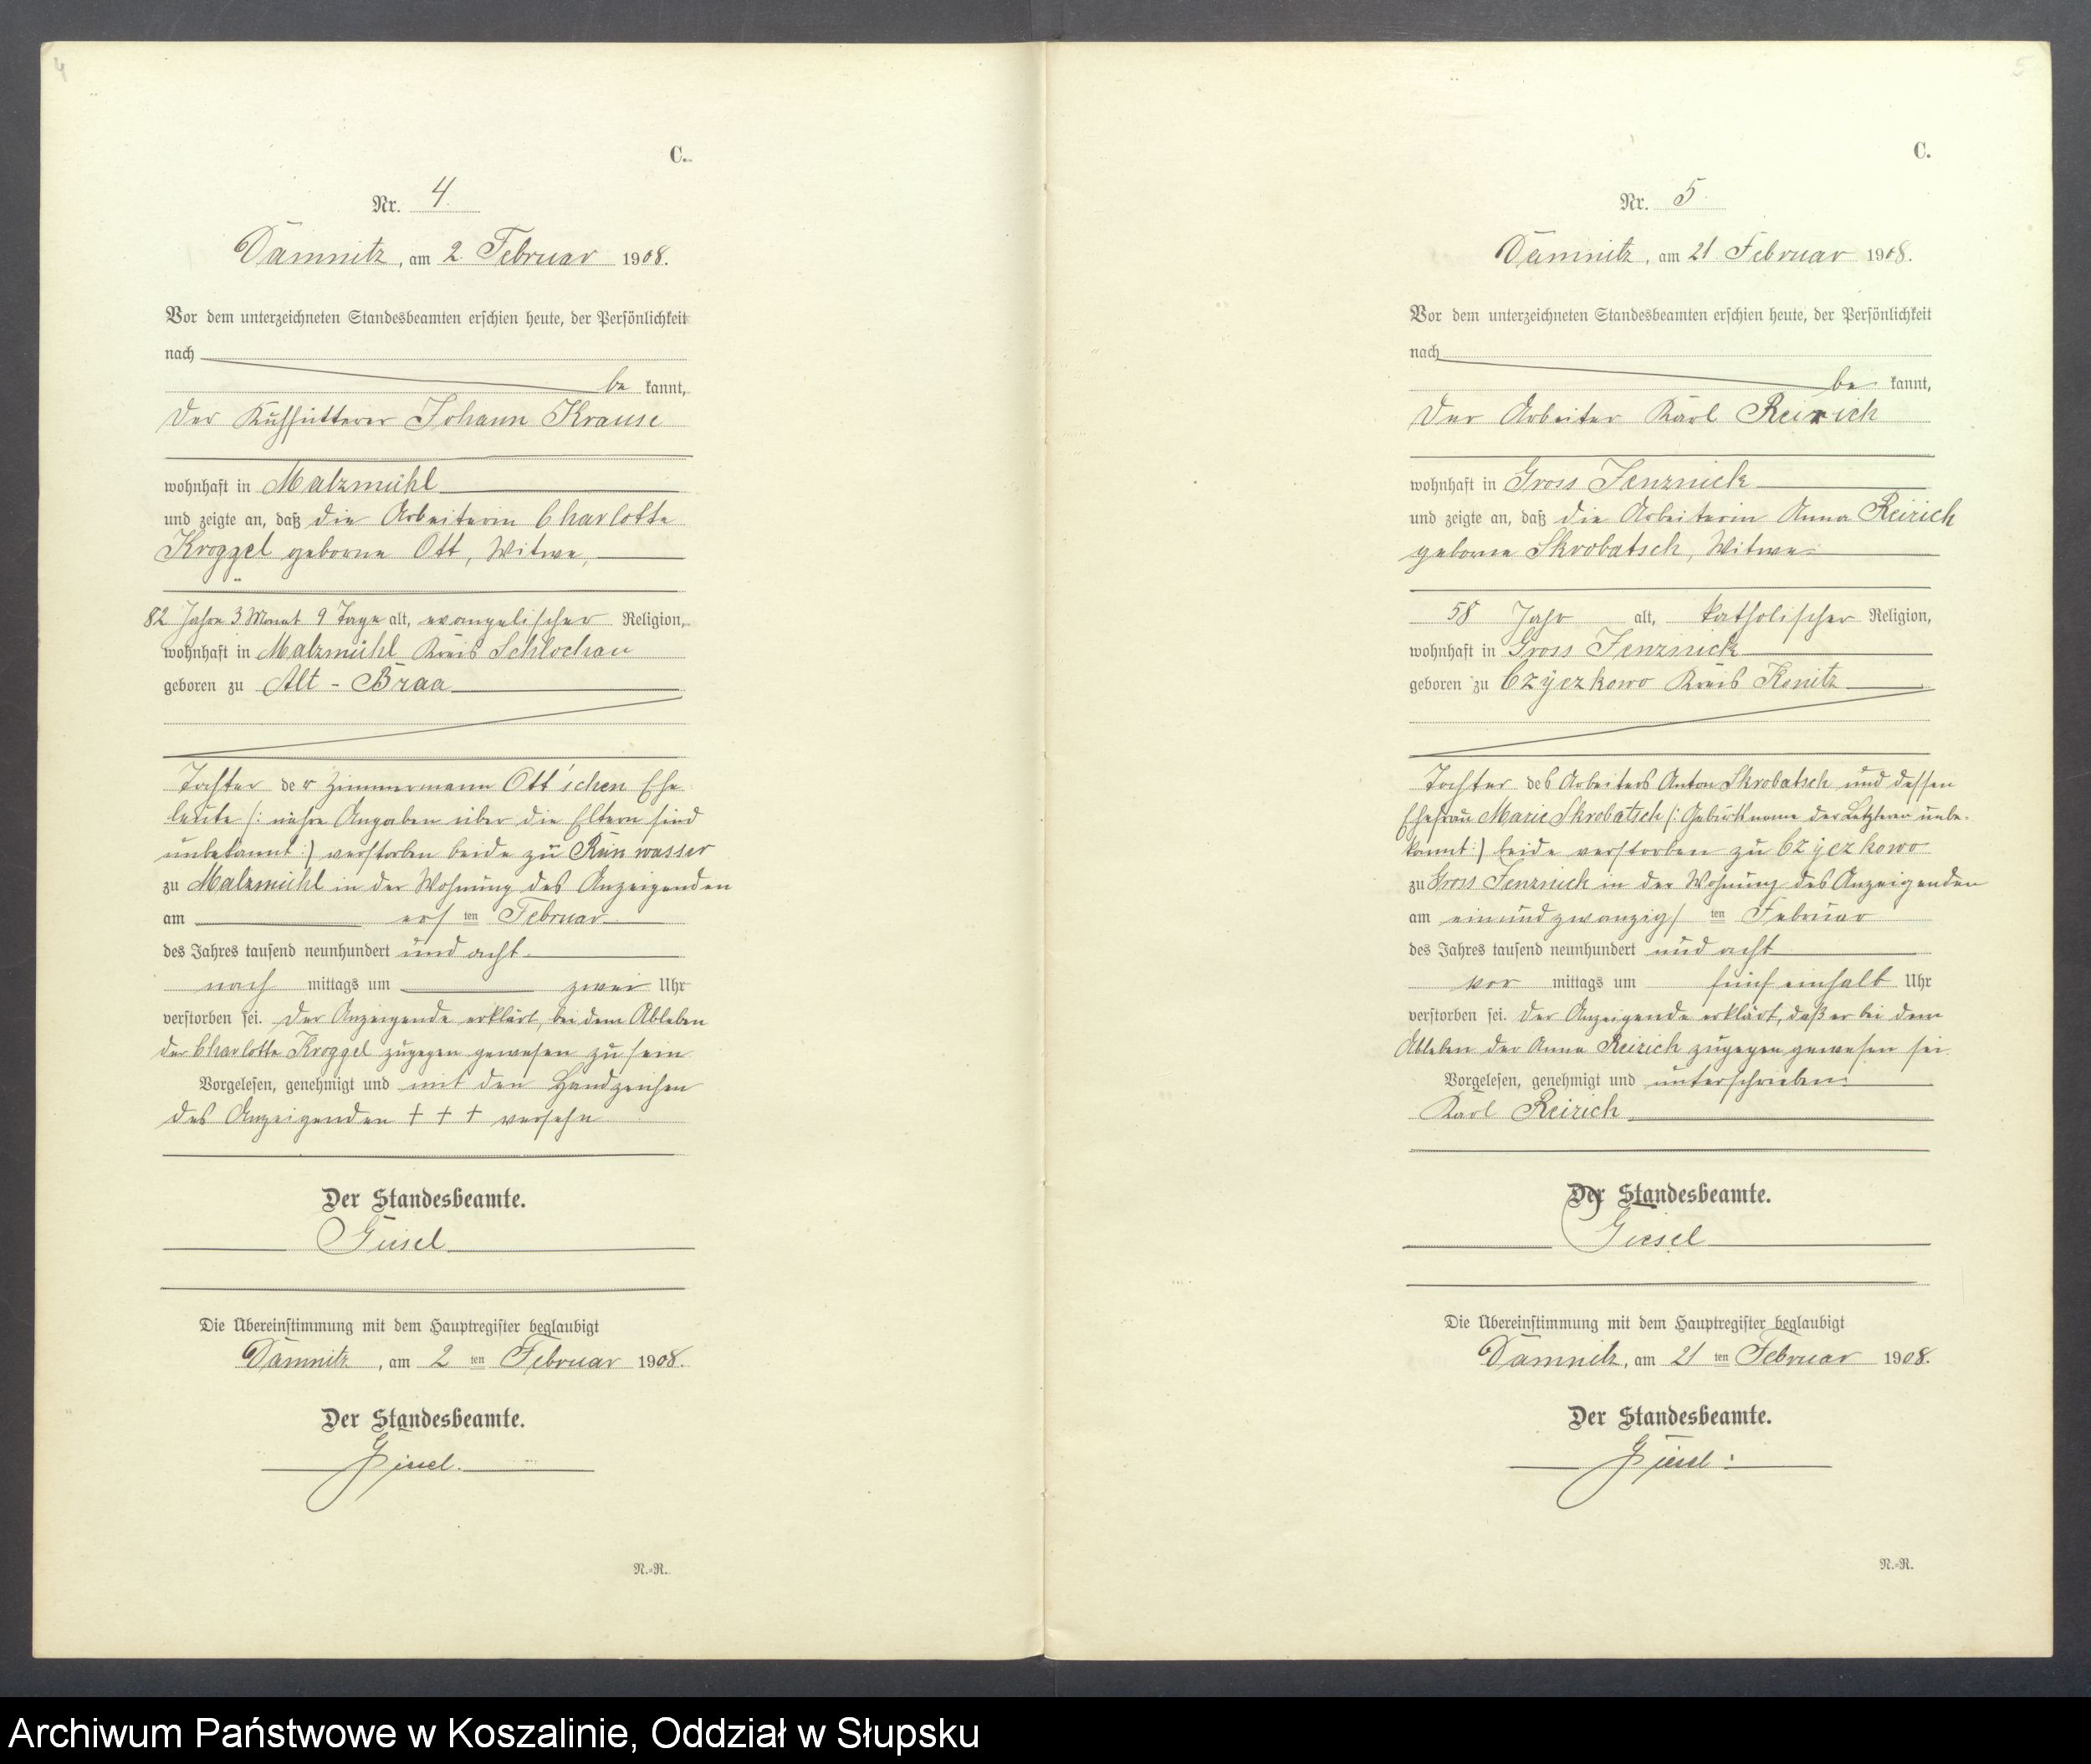 4
C.
Nr. 4.
Damnitz, am 2. Februar 1908.
Vor dem unterzeichneten Standesbeamten erschien heute, der Persönlichkeit
nach
be kannt,
der Kuhfütterer Johann Krause
wohnhaft in Malzmühl
und zeigte an, daß die Arbeiterin Charlotte
Kroggel geborne Ott, Witwe,
82 Jahre 3 Monat 9 Tage alt, evangelischer Religion,
wohnhaft in Malzmühl Kreis Schlochau
geboren zu Alt-Braa
Tochter der Zimmermann Ott'schen Ehe
leute /: nähre Angaben über die Eltern sind
unbekannt :/ verstorben beide zu
zu Malzmühl in der Wohnung des Anzeigenden
am ers ten Februar
des Jahres tausend neunhundert und acht
nach mittags um zwei Uhr
verstorben sei. Der Anzeigende erklärt, bei dem Ableben
der Charlotte Kroggel zugegen gewesen zu sein
Vorgelesen, genehmigt und mit den Handzeichen
des Anzeigenden + + + versehn
Der Standesbeamte.
Giesel
Die Übereinstimmung mit dem Hauptregister beglaubigt
Damnitz, am 2 ten Februar 1908.
Der Standesbeamte.
Giesel.
N.-R.
5
C.
Nr. 5.
Damnitz, am 21 Februar 1908.
Vor dem unterzeichneten Standesbeamten erschien heute, der Persönlichkeit
nach
be kannt,
der Arbeiter Karl Reirich
wohnhaft in Gross Jenznick
und zeigte an, daß die Arbeiterin Anna Reirich
geborne Skrobatsch, Witwe
58 Jahr alt, katholischer Religion,
wohnhaft in Gross Jenznick
geboren zu Czyczkowo Kreis Konitz
Tochter des Arbeiters Anton Skrobatsch und dessen
Ehefrau Marie Skrobatsch /: Geburtsname der Letzteren unbe-
kannt :/ beide verstorben zu Czyczkowo
zu Gross Jenznick in der Wohnung des Anzeigenden
am einundzwanzigs ten Februar
des Jahres tausend neunhundert und acht
vor mittags um fünf einhalb Uhr
verstorben sei. Der Anzeigende erklärt, daß er bei dem
Ableben der Anna Reirich zugegen gewesen sei.
Vorgelesen, genehmigt und unterschrieben
Karl Reirich
Der Standesbeamte.
Giesel
Die Übereinstimmung mit dem Hauptregister beglaubigt
Damnitz, am 21 ten Februar 1908.
Der Standesbeamte.
Giesel.
N.-R.
Archiwum Państwowe w Koszalinie, Oddział w Słupsku